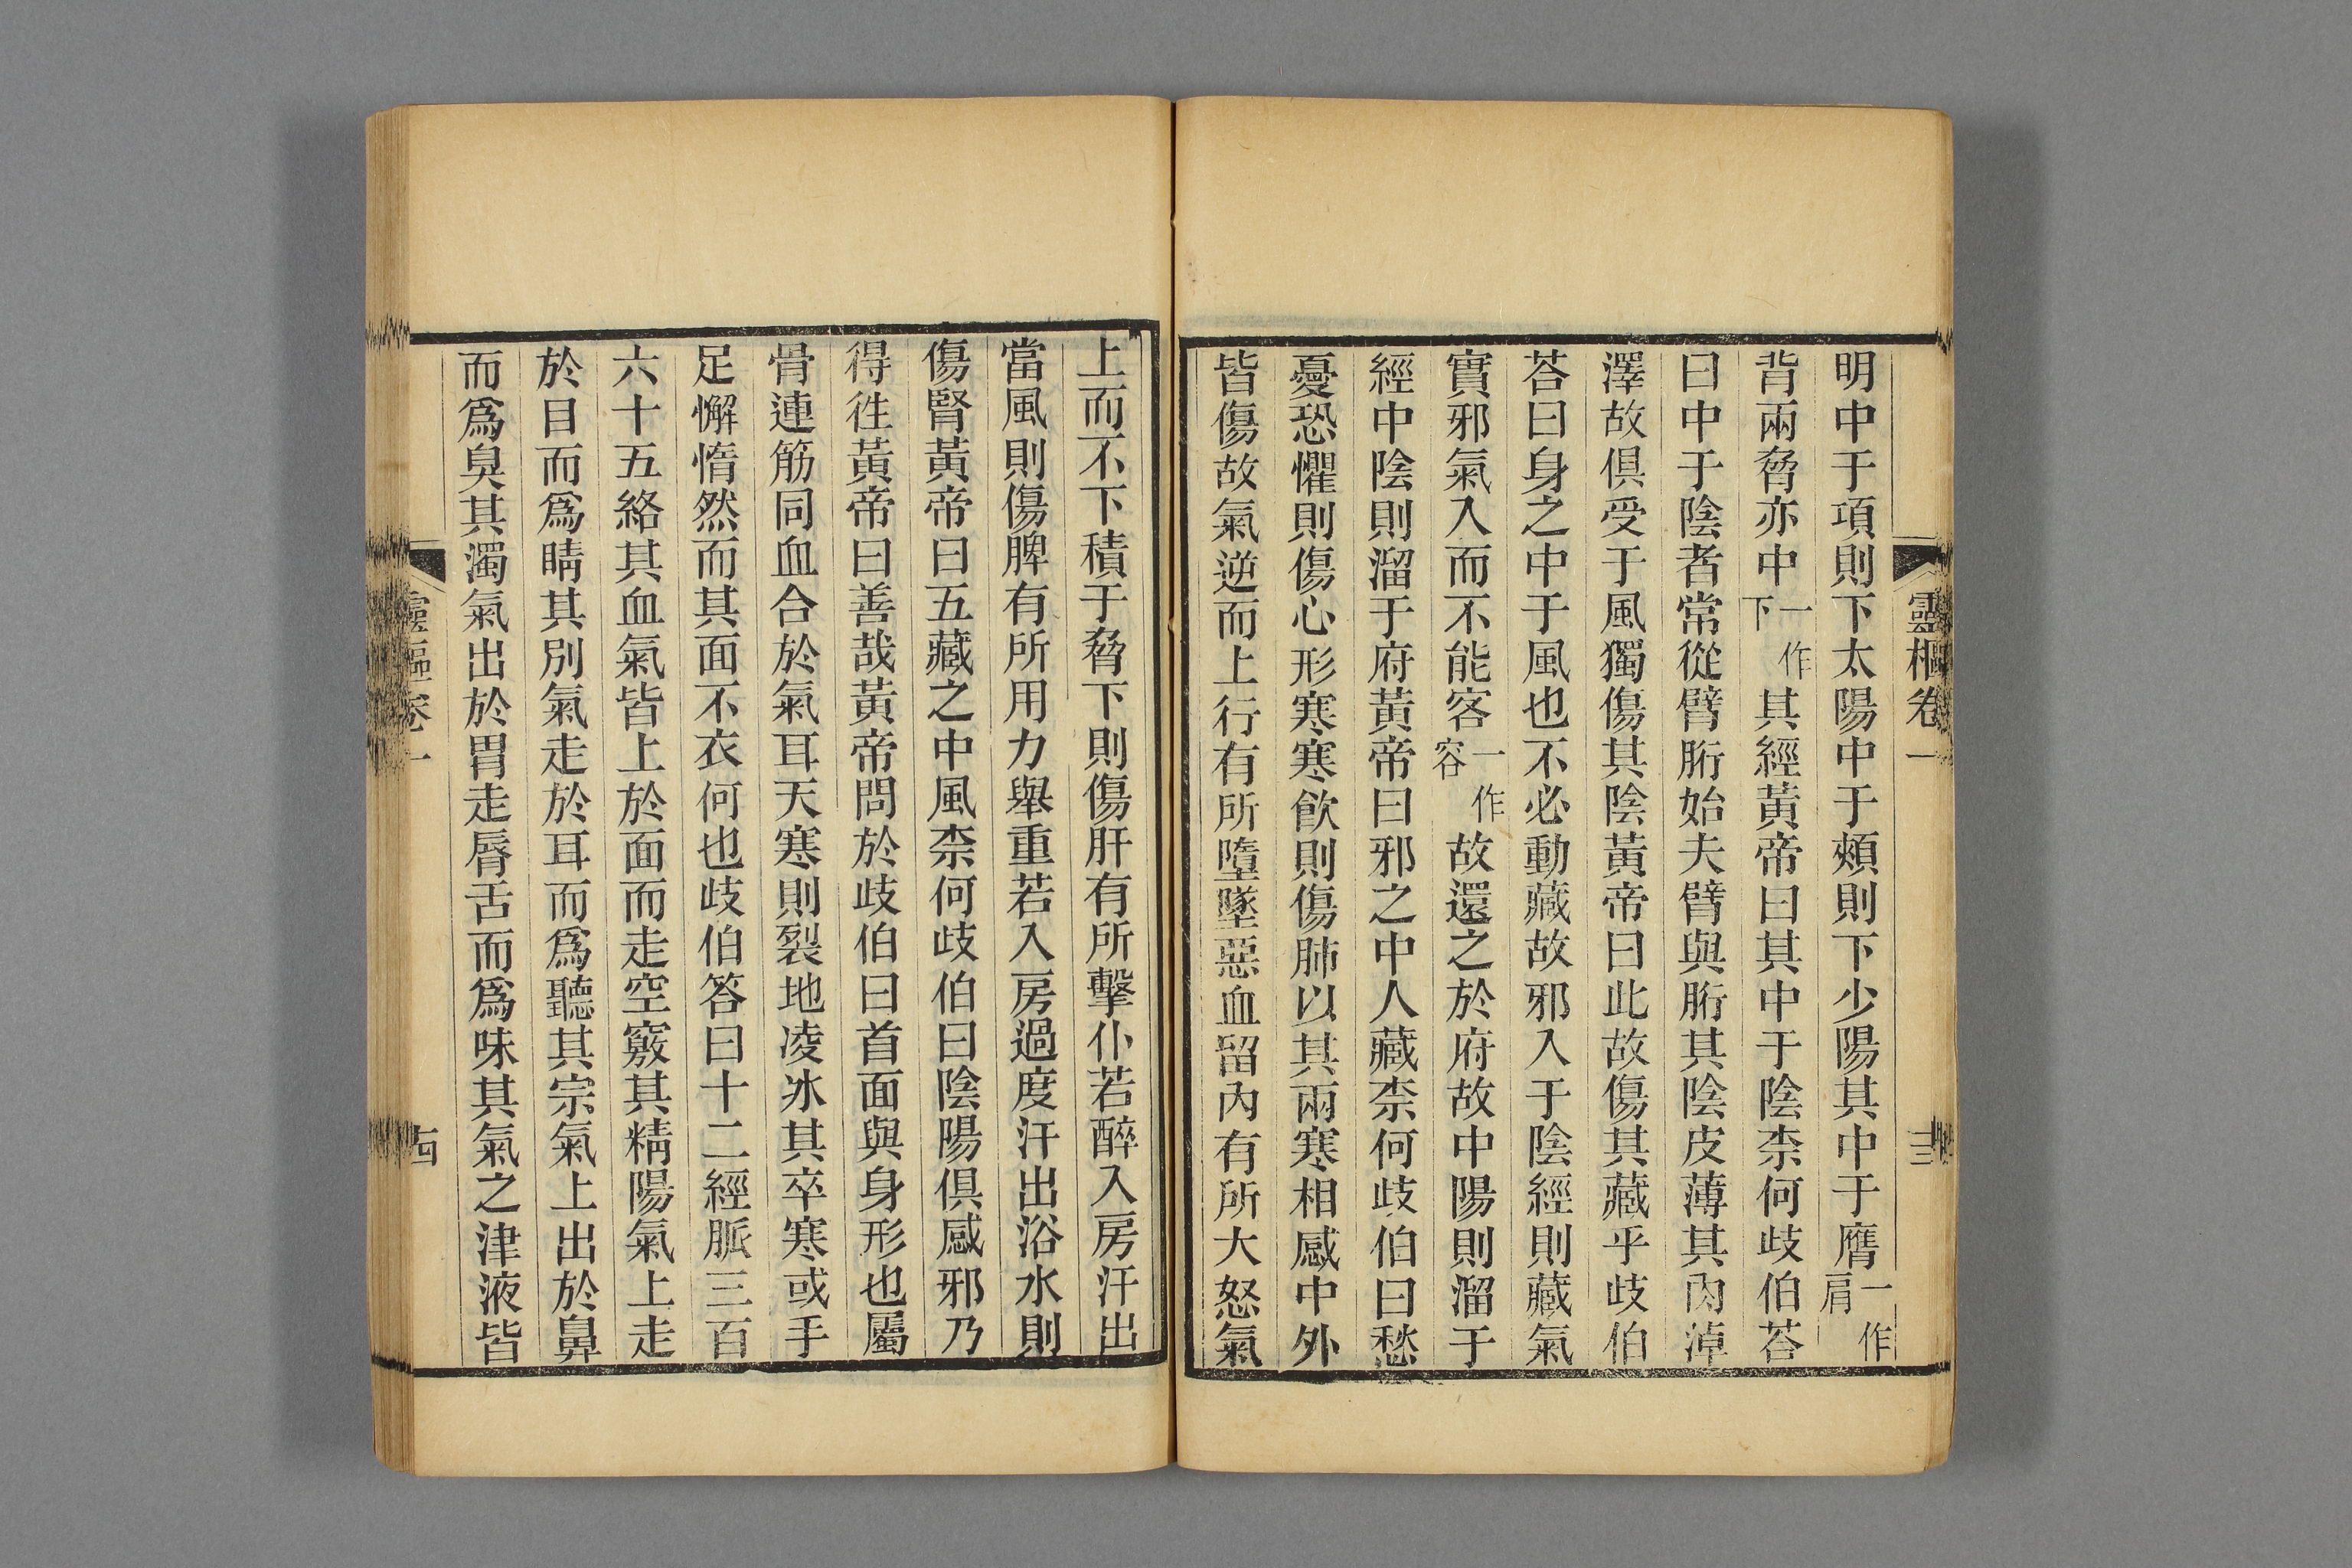 靈樞卷一
十三
明中于項則下太陽中于頰則下少陽其中于膺一作肩
背兩脅亦中一作下其經黃帝曰其中于陰柰何歧伯荅
曰中于陰者常從臂胻始夫臂與胻其陰皮薄其肉淖
澤故俱受于風獨傷其陰黃帝曰此故傷其藏乎歧伯
荅曰身之中于風也不必動藏故邪入于陰經則藏氣
實邪氣入而不能客一作容故還之於府故中陽則溜于
經中陰則溜于府黃帝曰邪之中人藏柰何歧伯曰愁
憂恐懼則傷心形寒寒飮則傷肺以其兩寒相感中外
皆傷故氣逆而上行有所墮墜惡血留內有所大怒氣
上而不下積于脅下則傷肝有所擊仆若醉入房汗出
當風則傷脾有所用力舉重若入房過度汗出浴水則
傷腎黃帝曰五藏之中風柰何歧伯曰陰陽俱感邪乃
得徃黃帝曰善哉黃帝問於歧伯曰首面與身形也屬
骨連筋同血合於氣耳天寒則裂地凌冰其卒寒或手
足懈惰然而其面不衣何也歧伯答曰十二經脈三百
六十五絡其血氣皆上於面而走空竅其精陽氣上走
於目而爲睛其別氣走於耳而爲聽其宗氣上出於鼻
而爲臭其濁氣出於胃走脣舌而爲味其氣之津液皆
靈樞卷一
十四